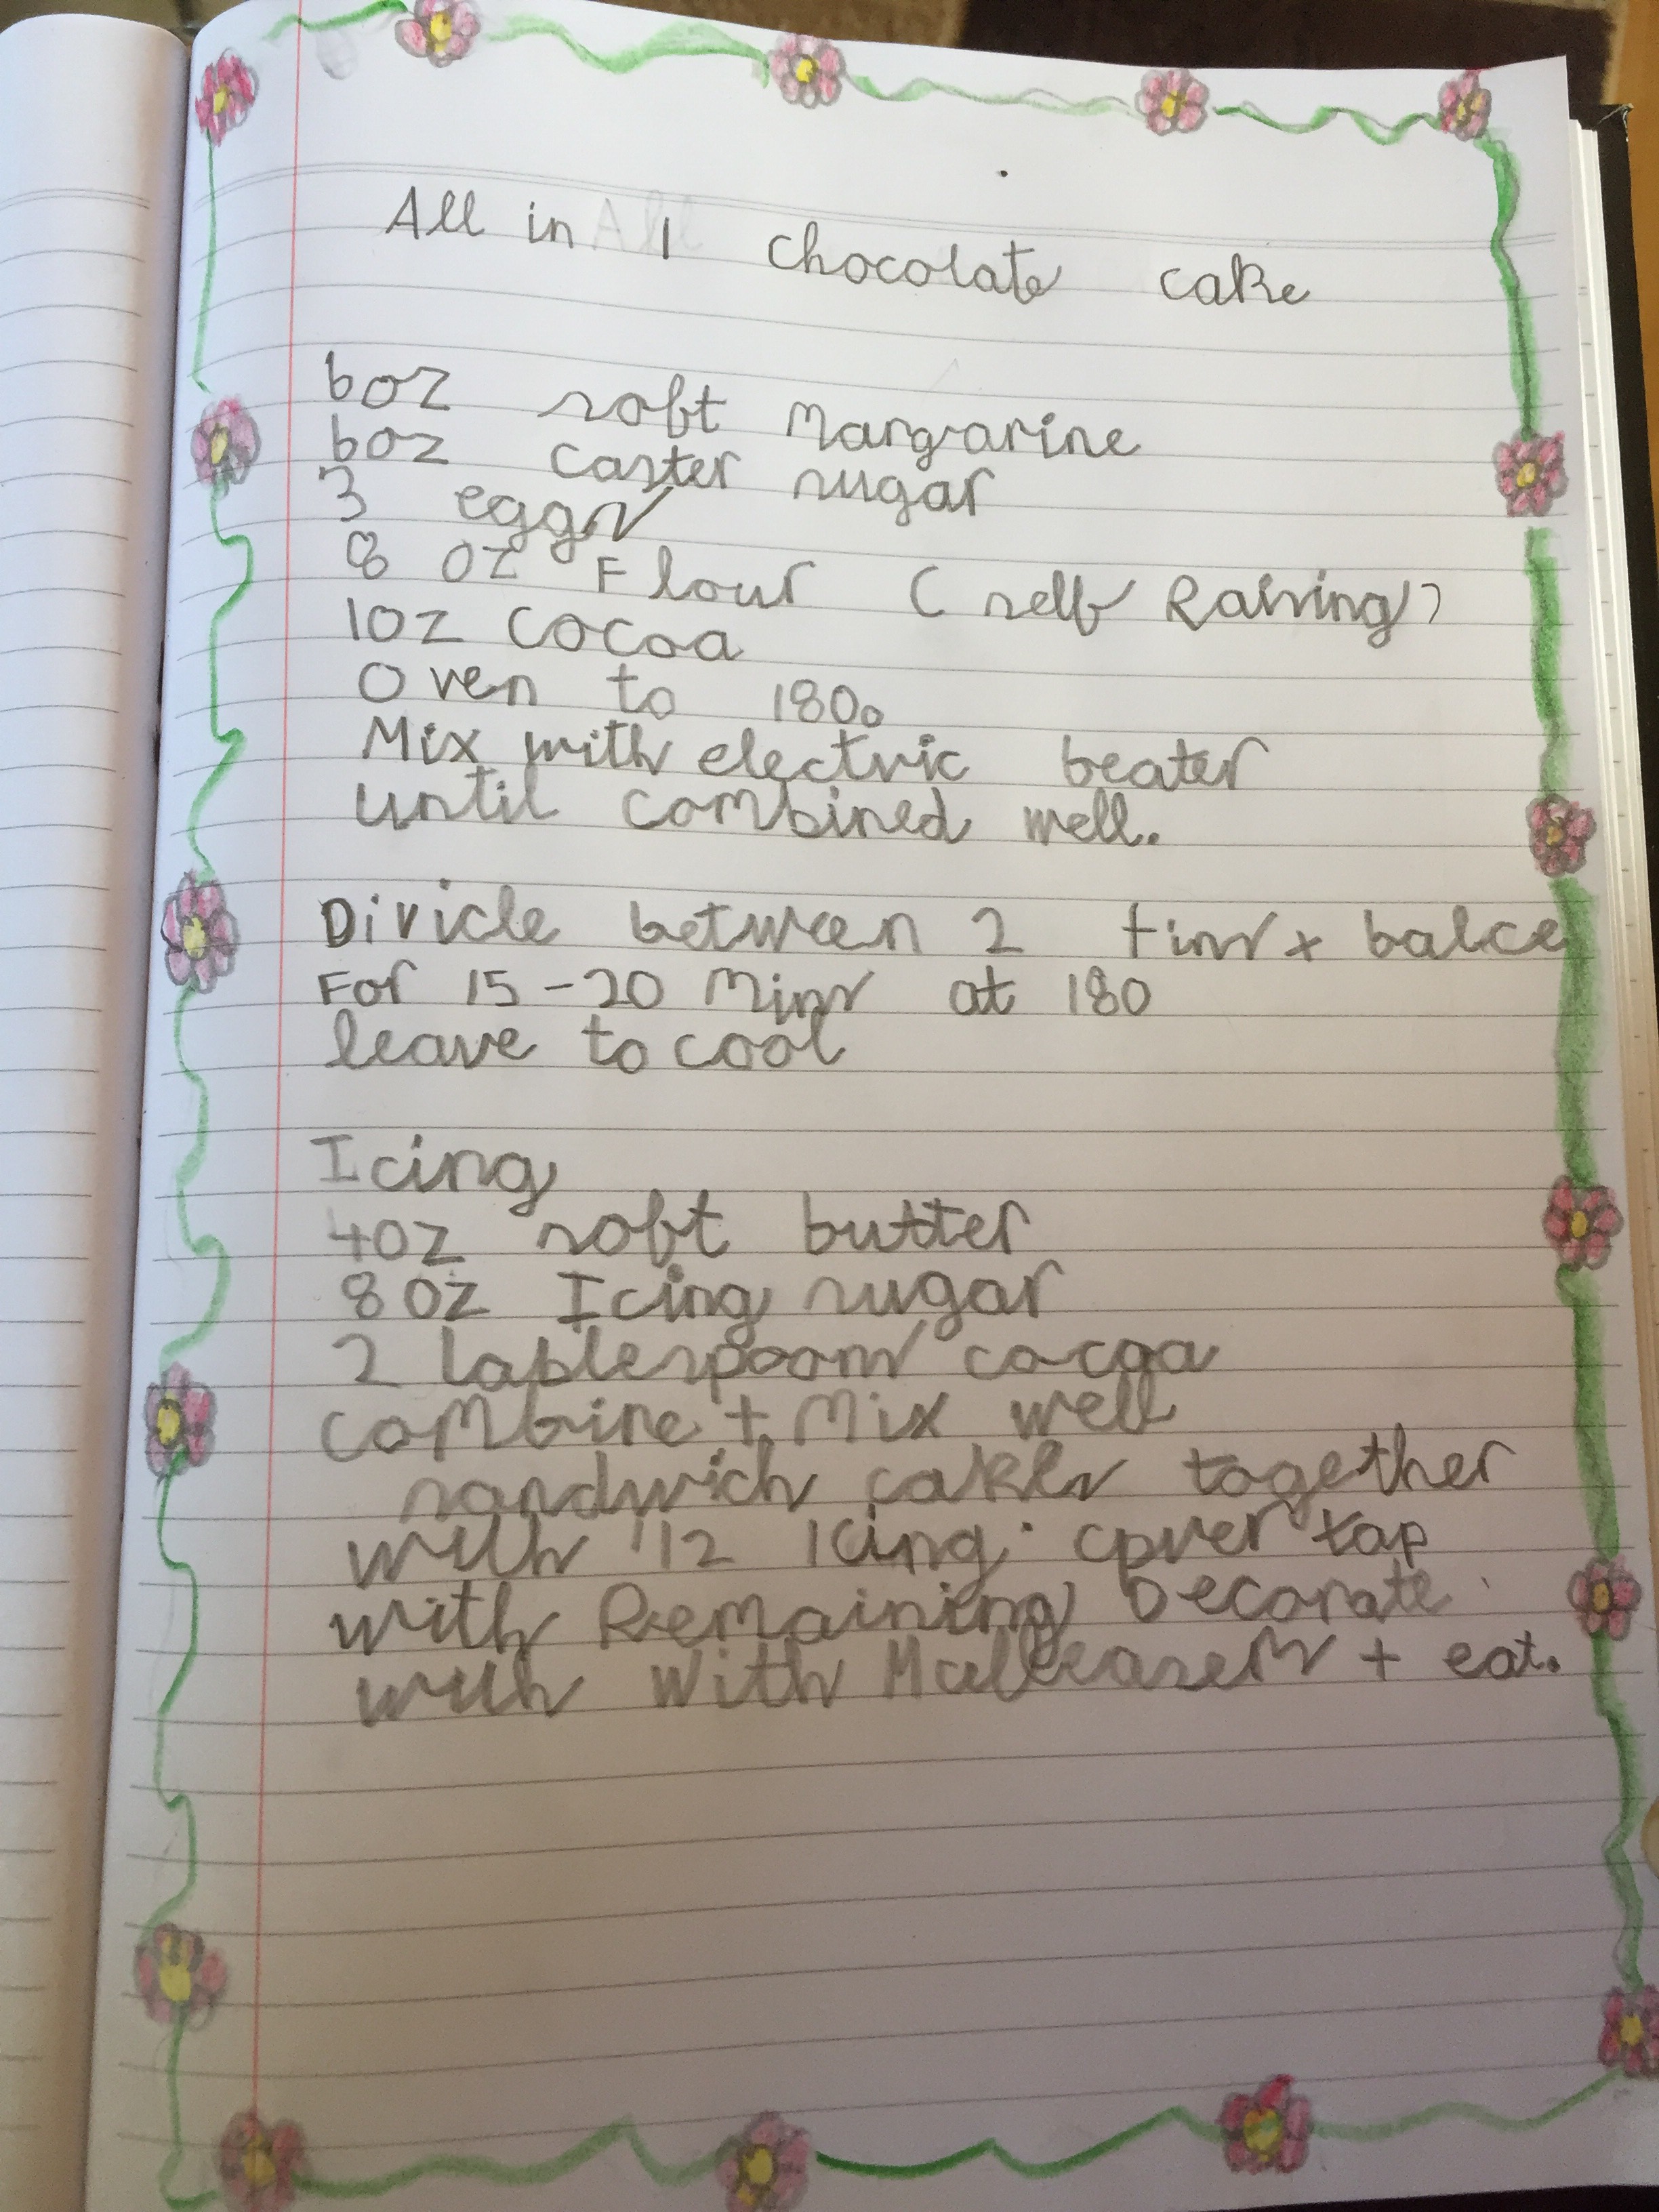 All in 1 chocolate cake
6oz soft Margarine
6oz caster sugar
3 eggs
8 oz Flour (self Raising)
1oz cocoa
Oven to 180o
Mix with electric beater
until combined well.
Divide between 2 tins + bake
For 15-20 Mins at 180
leave to cool
Icing
4oz soft butter
8oz Icing sugar
2 tablespoons cocoa
combine + Mix well
sandwich cakes together
with 1/2 Icing. cover top
with Remaining Decorate
with with Malteasers + eat.